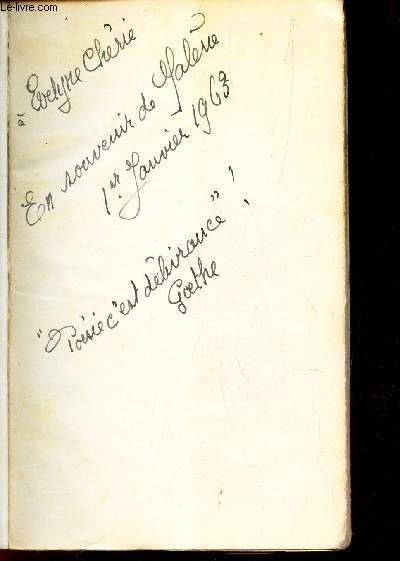 © Le-livre.com
à Evelyne Chérie
En souvenir de Malène
1er Janvier 1963
"Poésie c'est délivrance"!
Goethe